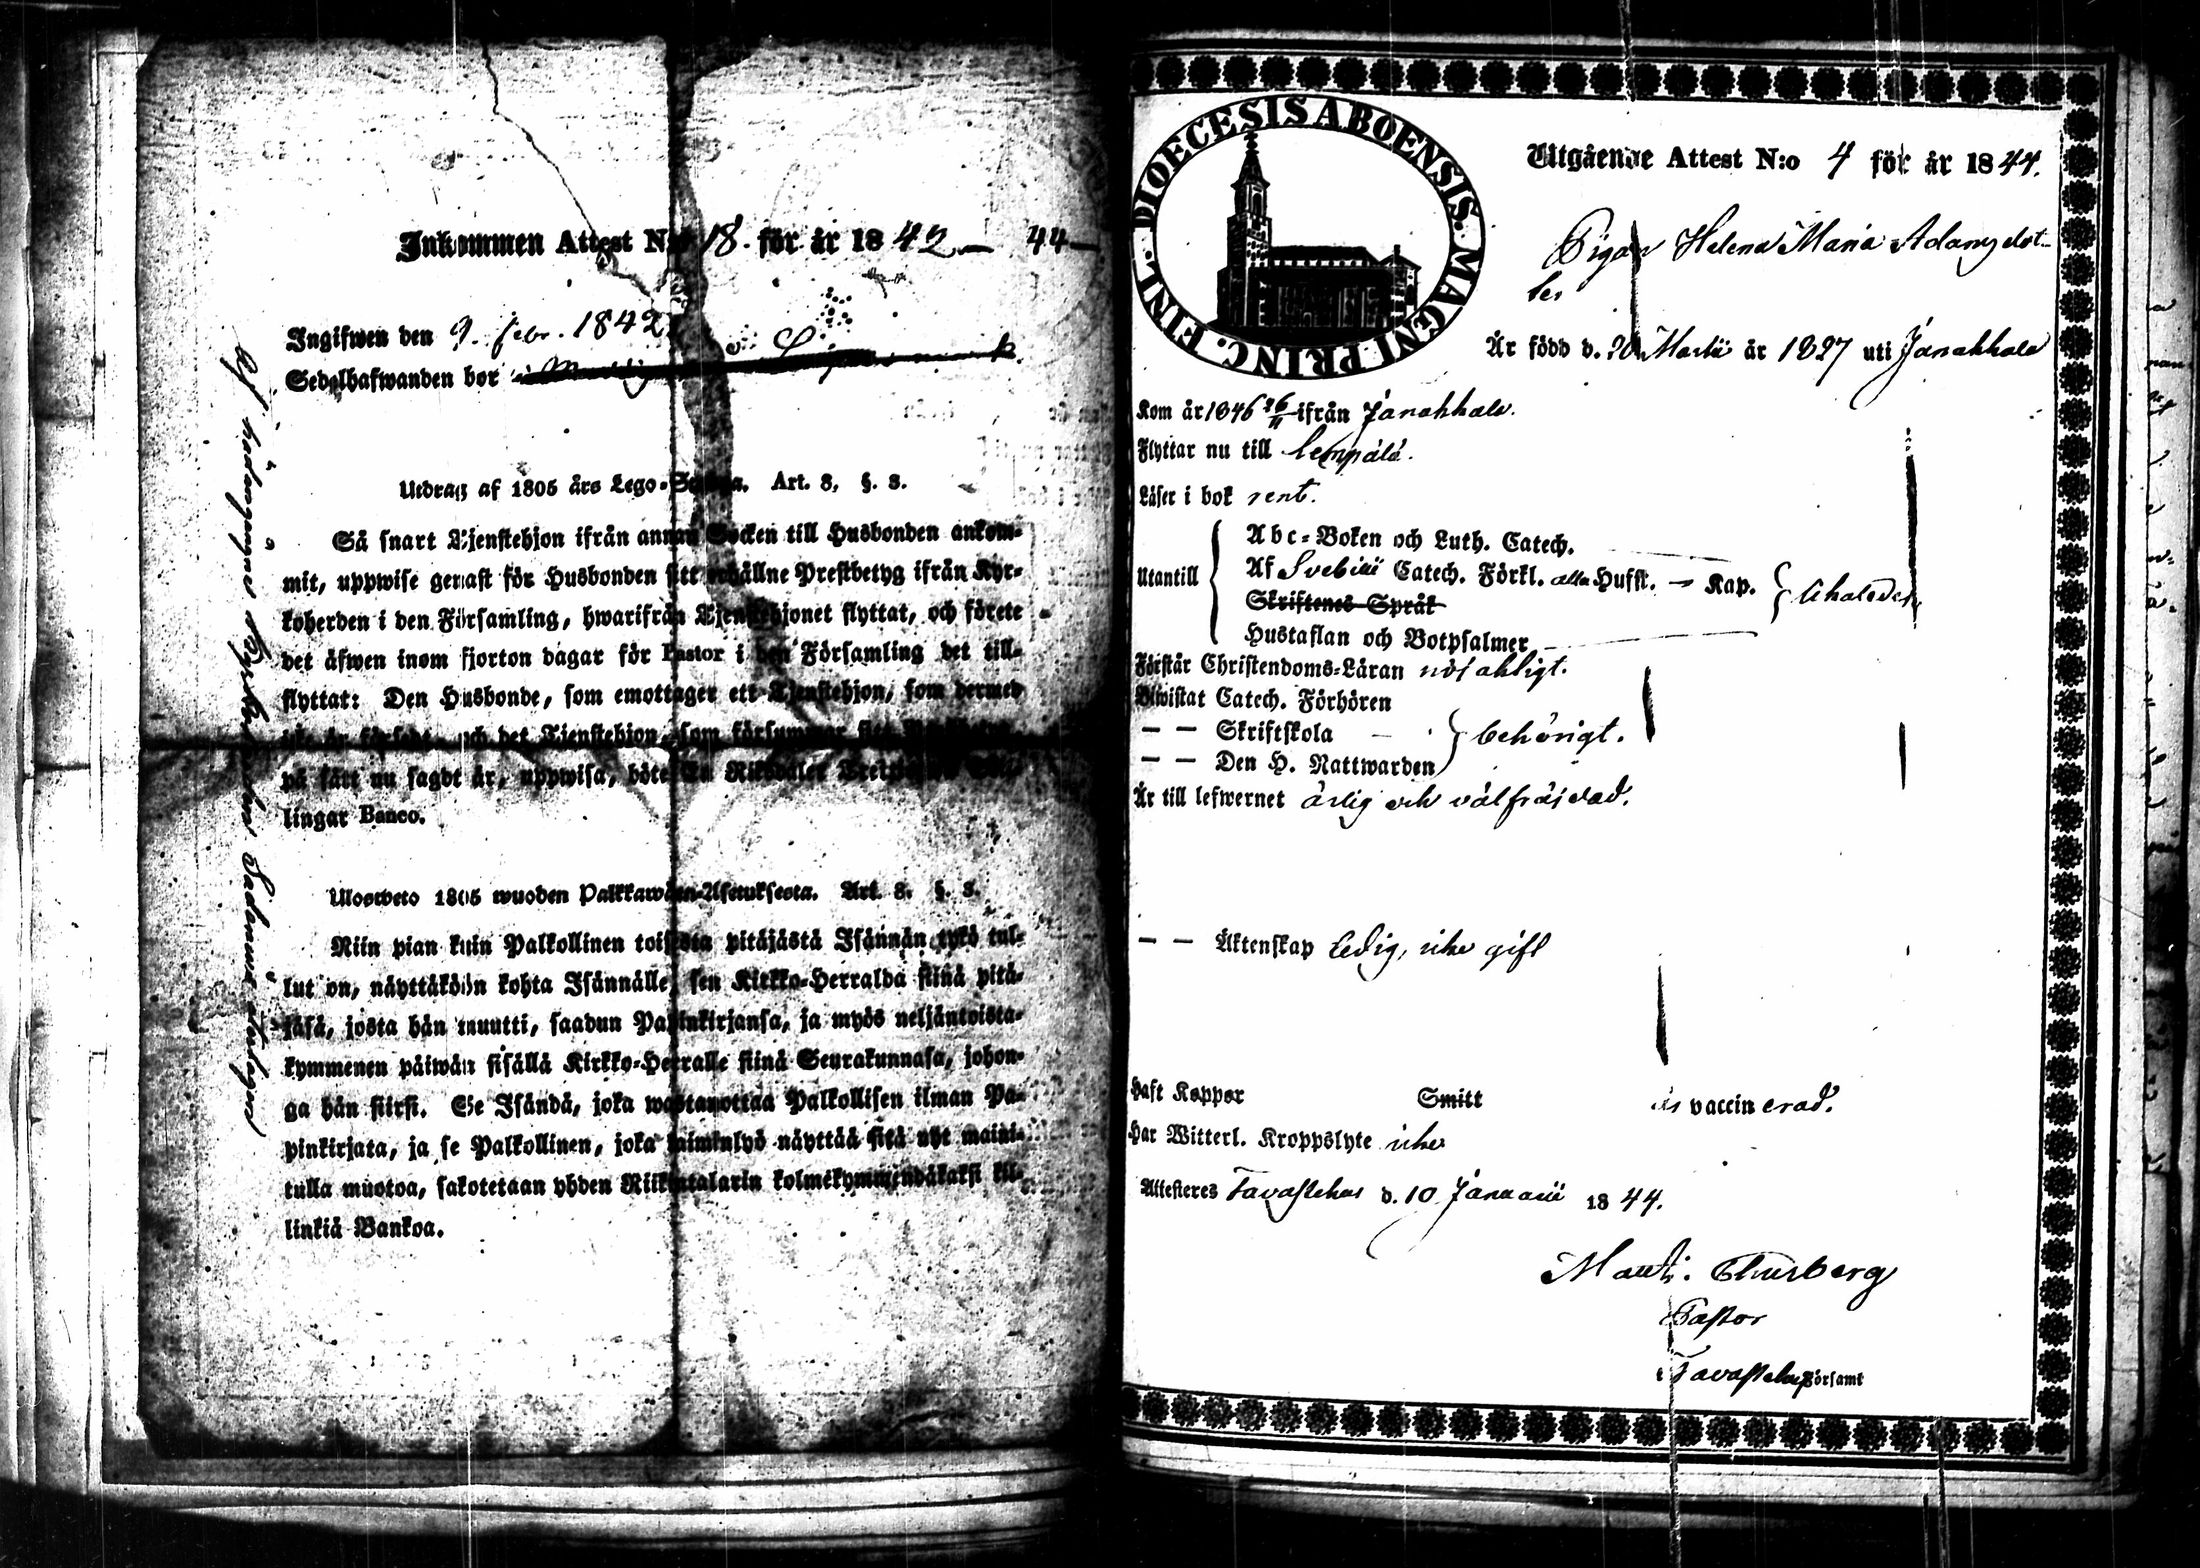 Inkommen Attest N:o 18. för år 1842 — 44 —
Ingifwen den 9. febr. 1842
Sedelhafwanden bor
Utdrag af 1805 års Lego-Stadga. Art. 8, §. 3.
Så snart Tjenstehjon ifrån annan Socken till Husbonden ankom-
mit, uppwise genast för Husbonden sitt erhållne Prestbetyg ifrån Kyr-
koherden i den Församling, hwarifrån Tjenstehjonet flyttat, och förete
det äfwen inom fjorton dagar för Pastor i den Församling det till-
flyttat: Den Husbonde, som emottager ett Tjenstehjon, som dermed
och det Tjenstehjon, som försummar
på sätt nu sagdt är, uppwisa, böte En Riksdaler
lingar Banco.
Ulosweto 1805 wuoden Palkkawäen-Asetuksesta. Art. 8. §. 3.
Niin pian kuin Palkollinen toisesta pitäjästä Isännän tykö tul-
lut on, näyttäköön kohta Isännälle sen Kirkko-Herralda siinä pitä-
jäsä, josta hän muutti, saadun Papinkirjansa, ja myös neljäntoista-
kymmenen päiwän sisällä Kirkko-Herralle siinä Seurakunnasa, johon-
ga hän siirsi. Se Isändä, joka wastanottaa Palkollisen ilman Pa-
pinkirjata, ja se Palkollinen, joka laiminlyö näyttää sitä nyt maini-
tulla muotoa, sakotetaan yhden Riikintalarin kolmekymmendäkaksi kil-
linkiä Bankoa.
DIOECESIS ABOENSIS. MAGNI PRINC. FINL.
Utgående Attest N:o 4 för år 1844.
Pigan Helena Maria Adamsdot-
ter
Är född d. 20 Martii år 1827 uti Janakkala
Kom år 1846 26/11 ifrån Janakkala.
Flyttar nu till Lempälä.
Läser i bok rent.
Utantill
Abc-Boken och Luth. Catech.
Af Svebilii Catech. Förkl. alla Hufst. — Kap.
Skriftenes Språk
Hustaflan och Botpsalmer
Förstår Christendoms-Läran nöjaktigt.
Biwistat Catech. Förhören
— — Skriftskola behörigt.
— — Den H. Nattwarden
Är till lefwernet ärlig och välfräjdad.
— — Äktenskap Ledig, icke gift
Haft Koppor Smitt är vaccinerad.
Har Witterl. Kroppslyte icke
Attesteres Tavastehus d. 10 Januarii 1844.
Maur. Thurberg
Pastor
i Tavastehus Församl